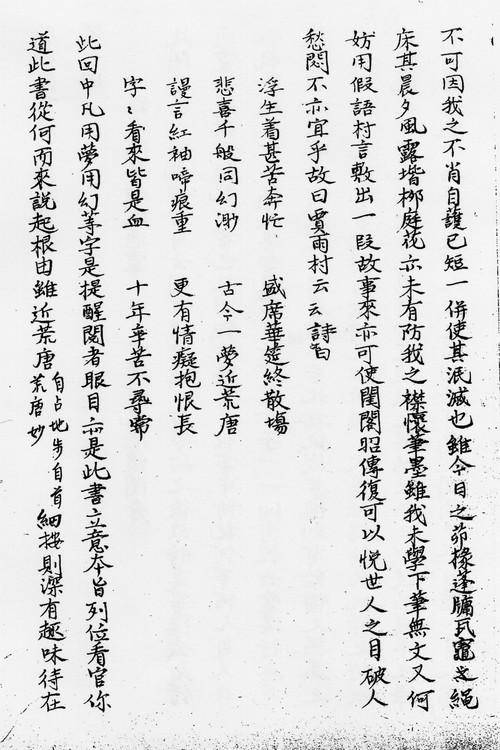 不可因我之不肖自護已短一併使其泯滅也雖今日之茆椽蓬牖瓦竈繩
床其晨夕風露堦柳庭花亦未有防我之襟懷筆墨雖我未學下筆無文又何
妨用假語村言敷出一段故事來亦可使閨閣昭傳復可以悅世人之目破人
愁悶不亦宜乎故曰賈雨村云云詩曰
浮生着甚苦奔忙 盛席華筵終散場
悲喜千般同幻渺 古今一夢近荒唐
謾言紅袖啼痕重 更有情癡抱恨長
字〻看來皆是血 十年辛苦不尋常
此回中凡用夢用幻等字是提醒閱者眼目亦是此書立意本旨列位看官你
道此書從何而來說起根由雖近荒唐 自占地步自首荒唐妙 細按則深有趣味待在